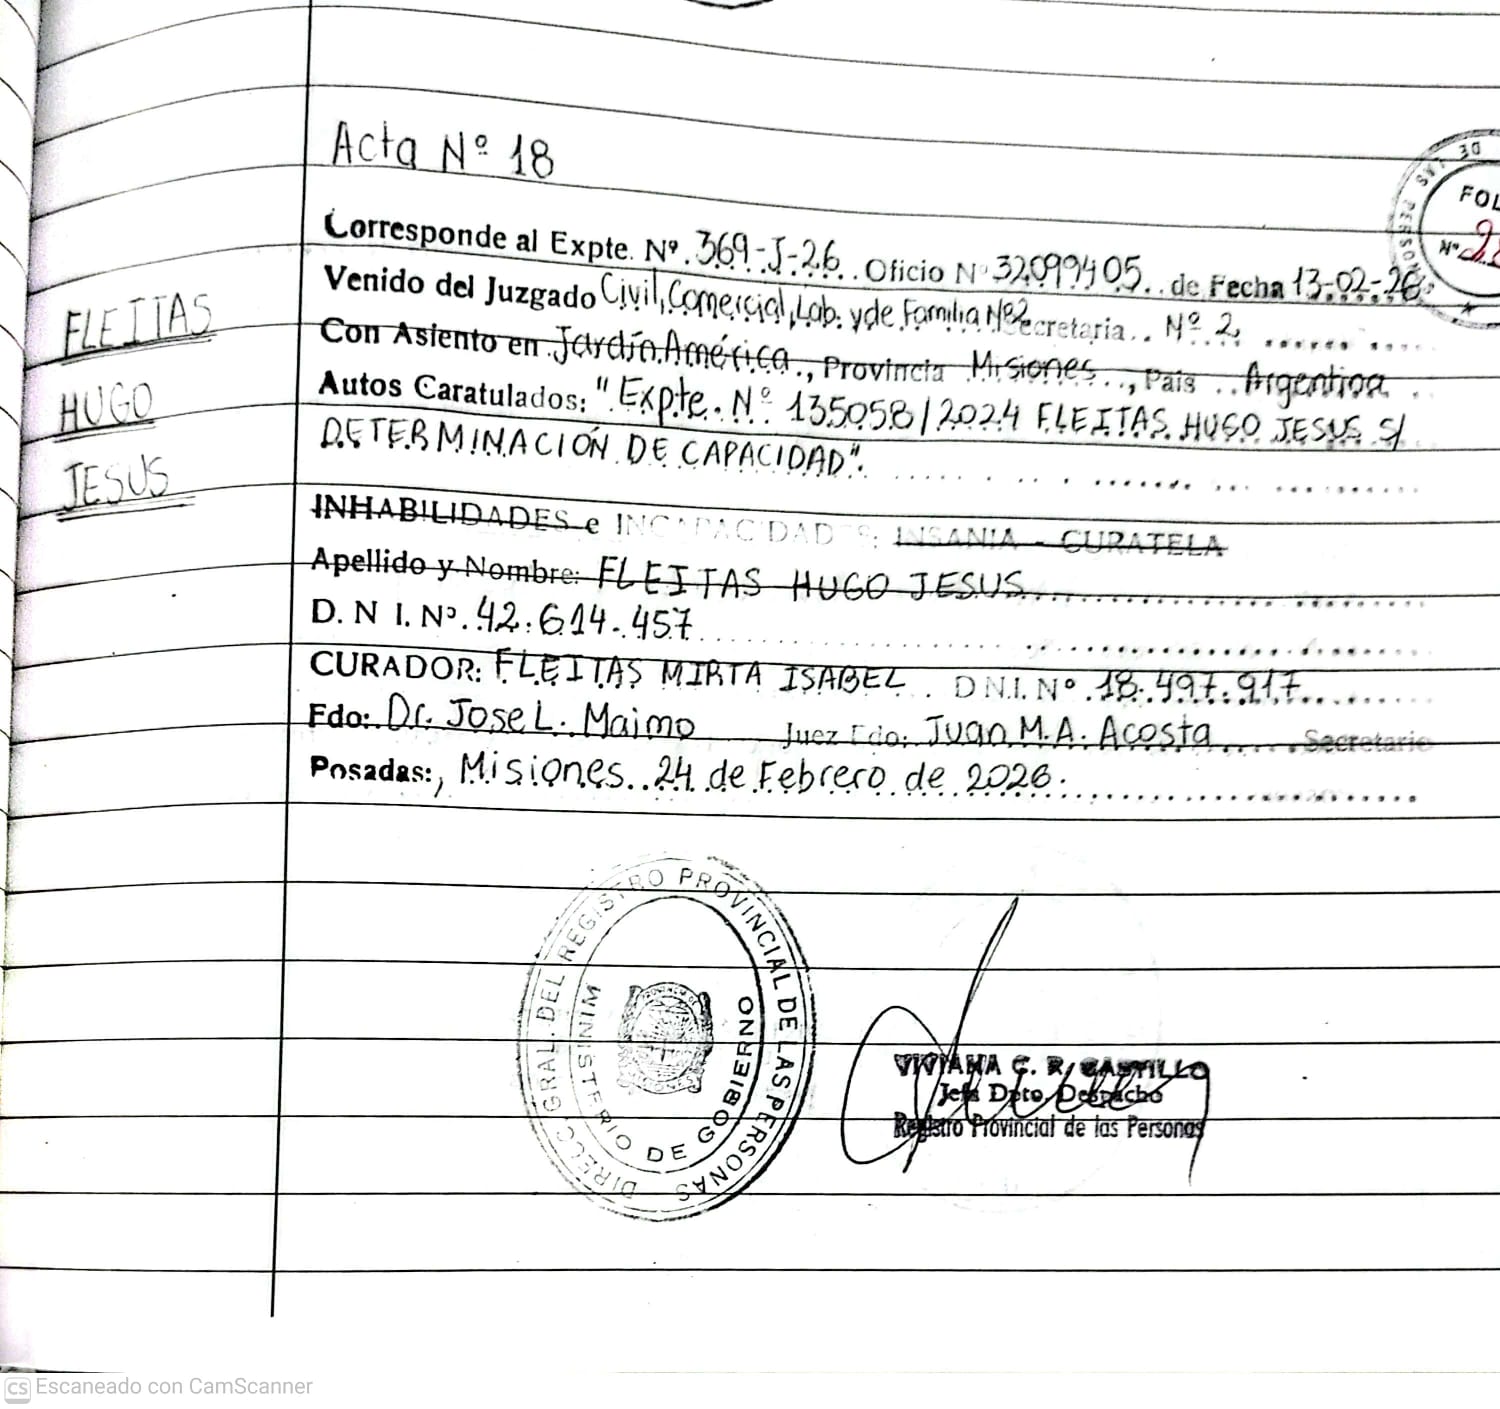 Acta Nº 18
FLEITAS
HUGO
JESUS
Corresponde al Expte. Nº. 369-J-26.. Oficio Nº 32099405.. de Fecha 13-02-26.
Venido del Juzgado Civil, Comercial, Lab. y de Familia Nº2 Secretaria.. Nº 2,
Con Asiento en Jardín América., Provincia Misiones.., Pais .. Argentina
Autos Caratulados: "Expte. Nº 135058/2024 FLEITAS HUGO JESUS S/
DETERMINACIÓN DE CAPACIDAD".
INHABILIDADES e INCAPACIDADES: INSANIA - CURATELA
Apellido y Nombre: FLEITAS HUGO JESUS
D. N I. Nº. 42.614.457
CURADOR: FLEITAS MIRTA ISABEL . D N.I. Nº .18.497.917
Fdo: Dr. Jose L. Maimo Juez Fdo: Juan M.A. Acosta Secretario
Posadas:, Misiones..24 de Febrero de 2026.
DE LAS PERSO
FOL
Nº
DIRECC. GRAL. DEL REGISTRO PROVINCIAL DE LAS PERSONAS
MINISTERIO DE GOBIERNO
VIVIANA C. R. CASTILLO
Jefa Dpto. Despacho
Registro Provincial de las Personas
CS Escaneado con CamScanner